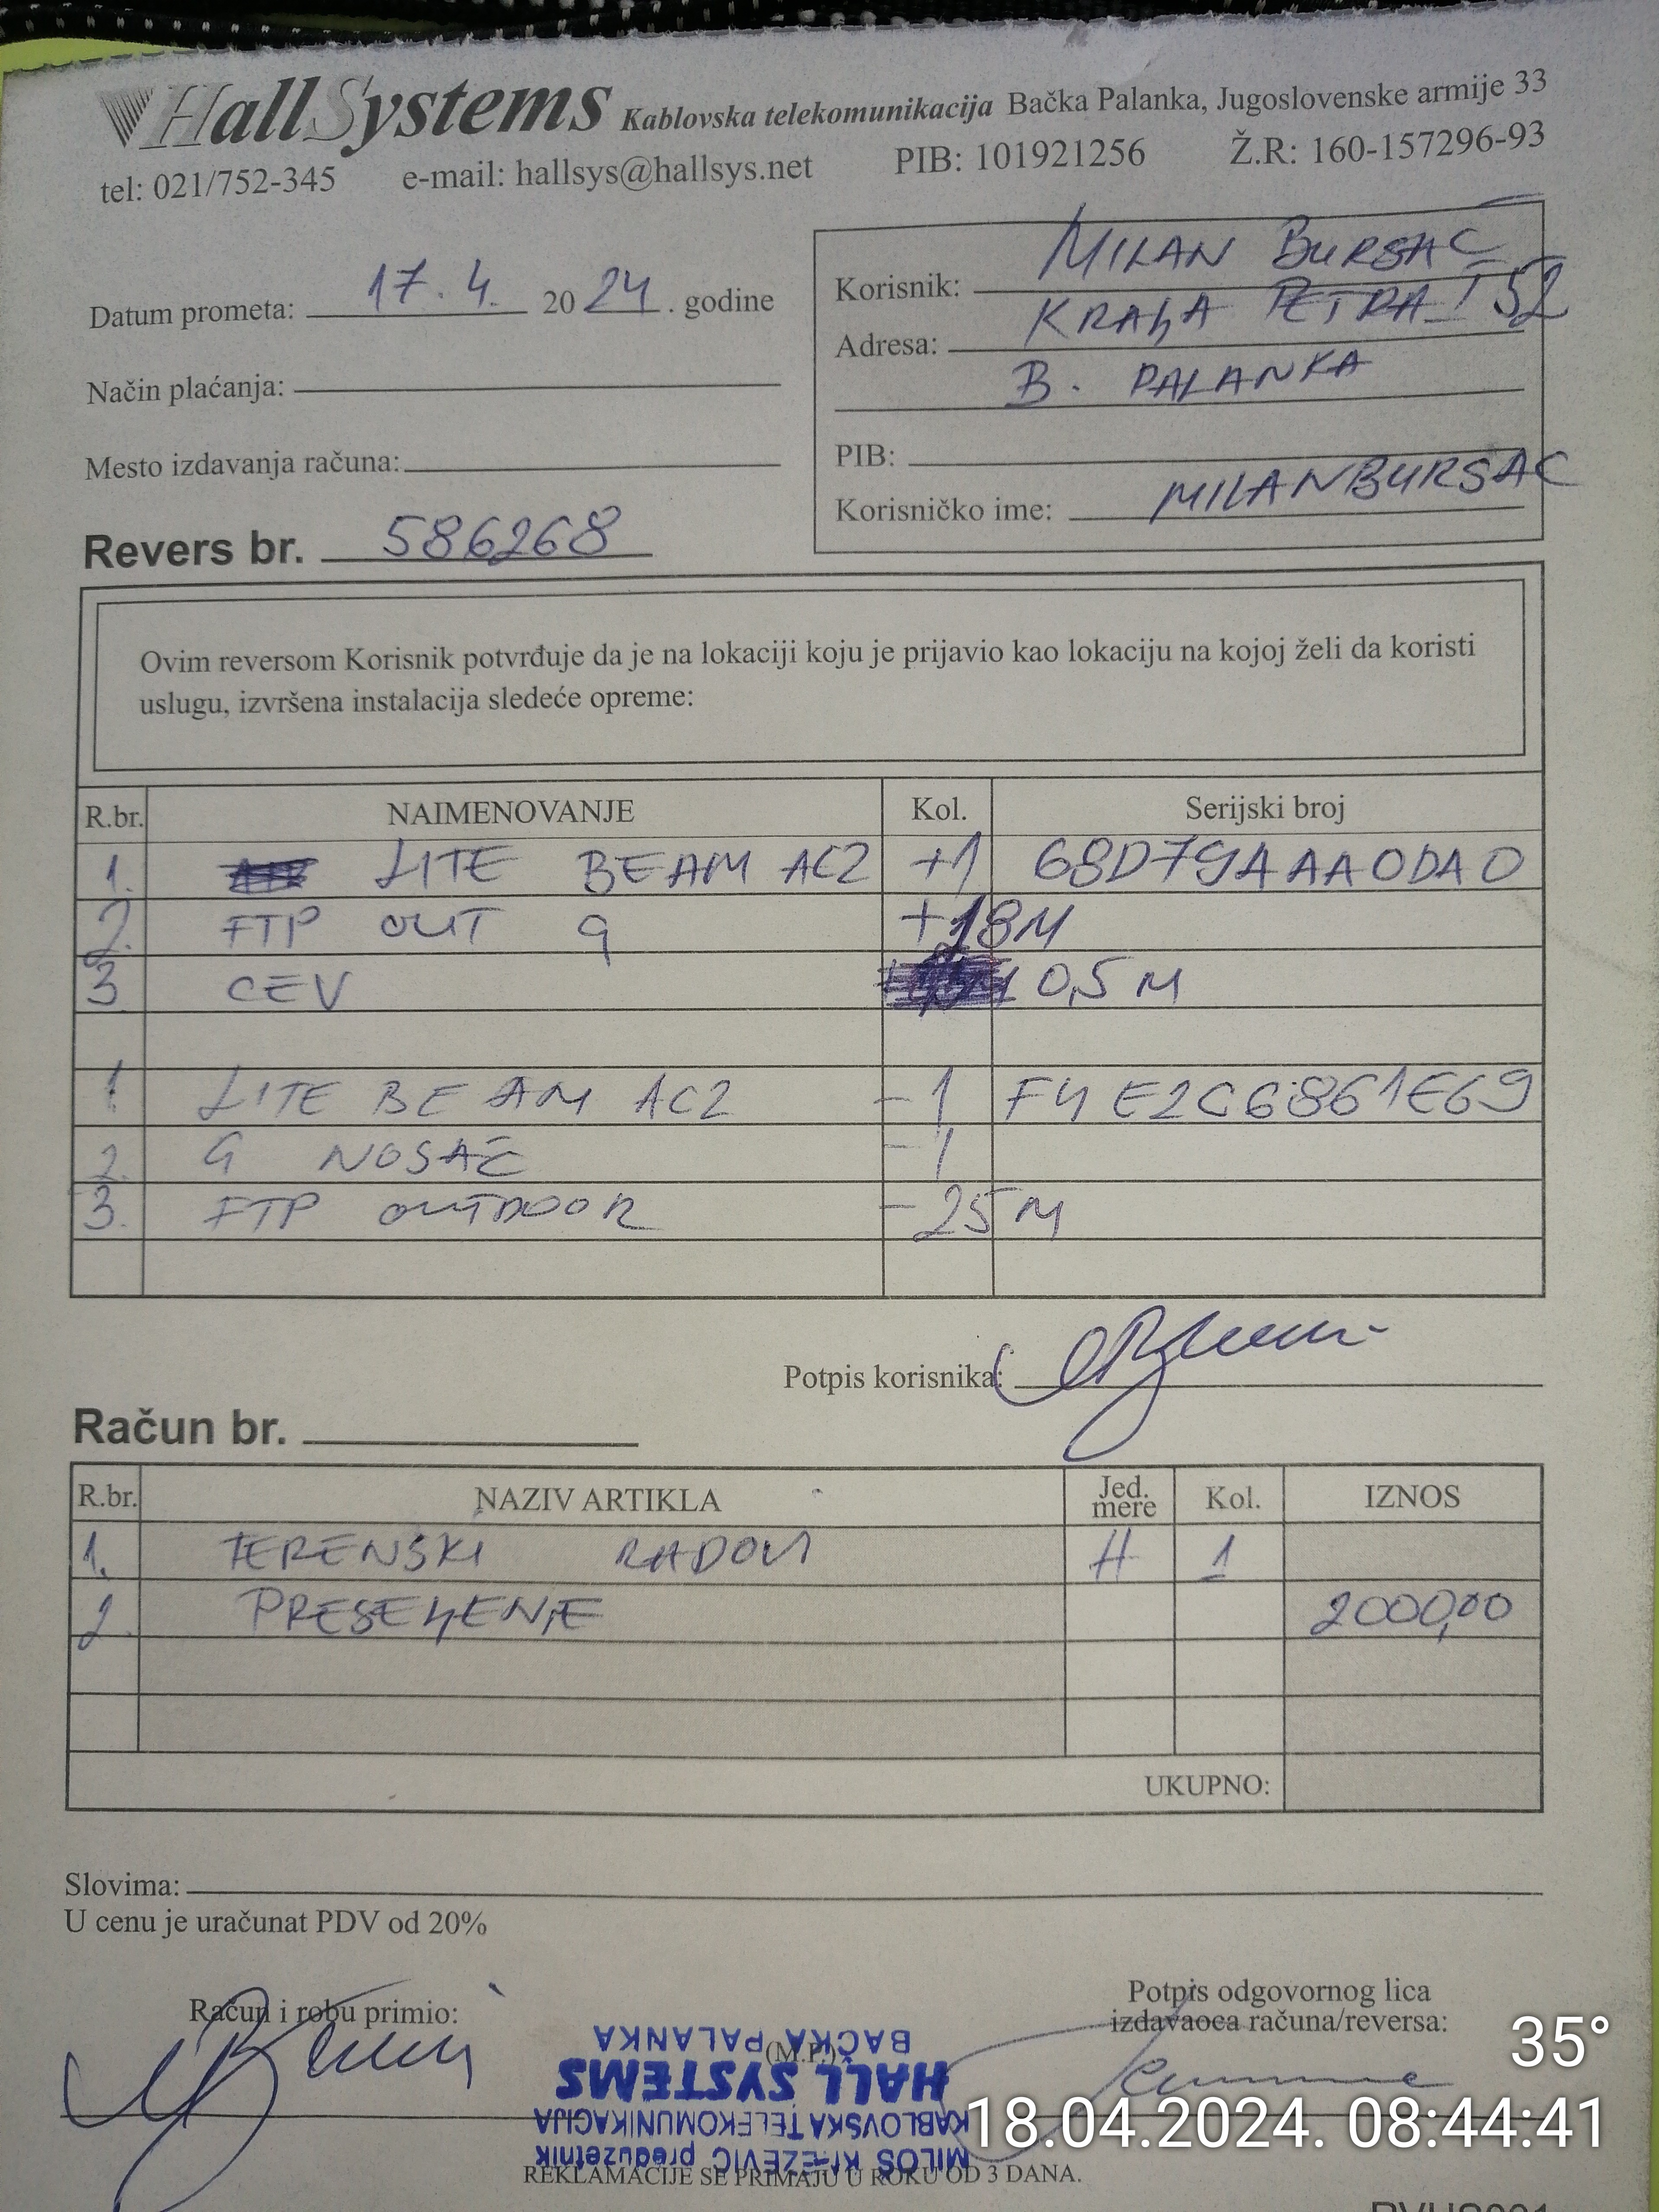 Hall Systems Kablovska telekomunikacija Bačka Palanka, Jugoslovenske armije 33
tel: 021/752-345 e-mail: hallsys@hallsys.net PIB: 101921256 Ž.R: 160-157296-93
Datum prometa: 17.4. 2024. godine
Način plaćanja:
Mesto izdavanja računa:
Revers br. 586268
Korisnik: MILAN BURSAĆ
Adresa: KRALJA PETRA I 52
B. PALANKA
PIB:
Korisničko ime: MILANBURSAC
Ovim reversom Korisnik potvrđuje da je na lokaciji koju je prijavio kao lokaciju na kojoj želi da koristi
uslugu, izvršena instalacija sledeće opreme:
R.br. NAIMENOVANJE Kol. Serijski broj
1. LITE BEAM AC2 +1 68D79AAA0DA0
2. FTP OUT G +18M
3 CEV 0,5 M
1. LITE BEAM AC2 -1 F4E2C6861E69
2. G NOSAČ -1
3. FTP OUTDOOR -25M
Potpis korisnika:
Račun br.
R.br. NAZIV ARTIKLA Jed. mere Kol. IZNOS
1. TERENSKI RADOVI H 1
2. PRESELJENJE 2000,00
UKUPNO:
Slovima:
U cenu je uračunat PDV od 20%
Račun i robu primio:
(M.P.)
Potpis odgovornog lica
izdavaoca računa/reversa:
MILOŠ preduzetnik
KABLOVSKA TELEKOMUNIKACIJA
HALL SYSTEMS
BAČKA PALANKA
35°
18.04.2024. 08:44:41
REKLAMACIJE SE PRIMAJU U ROKU OD 3 DANA.